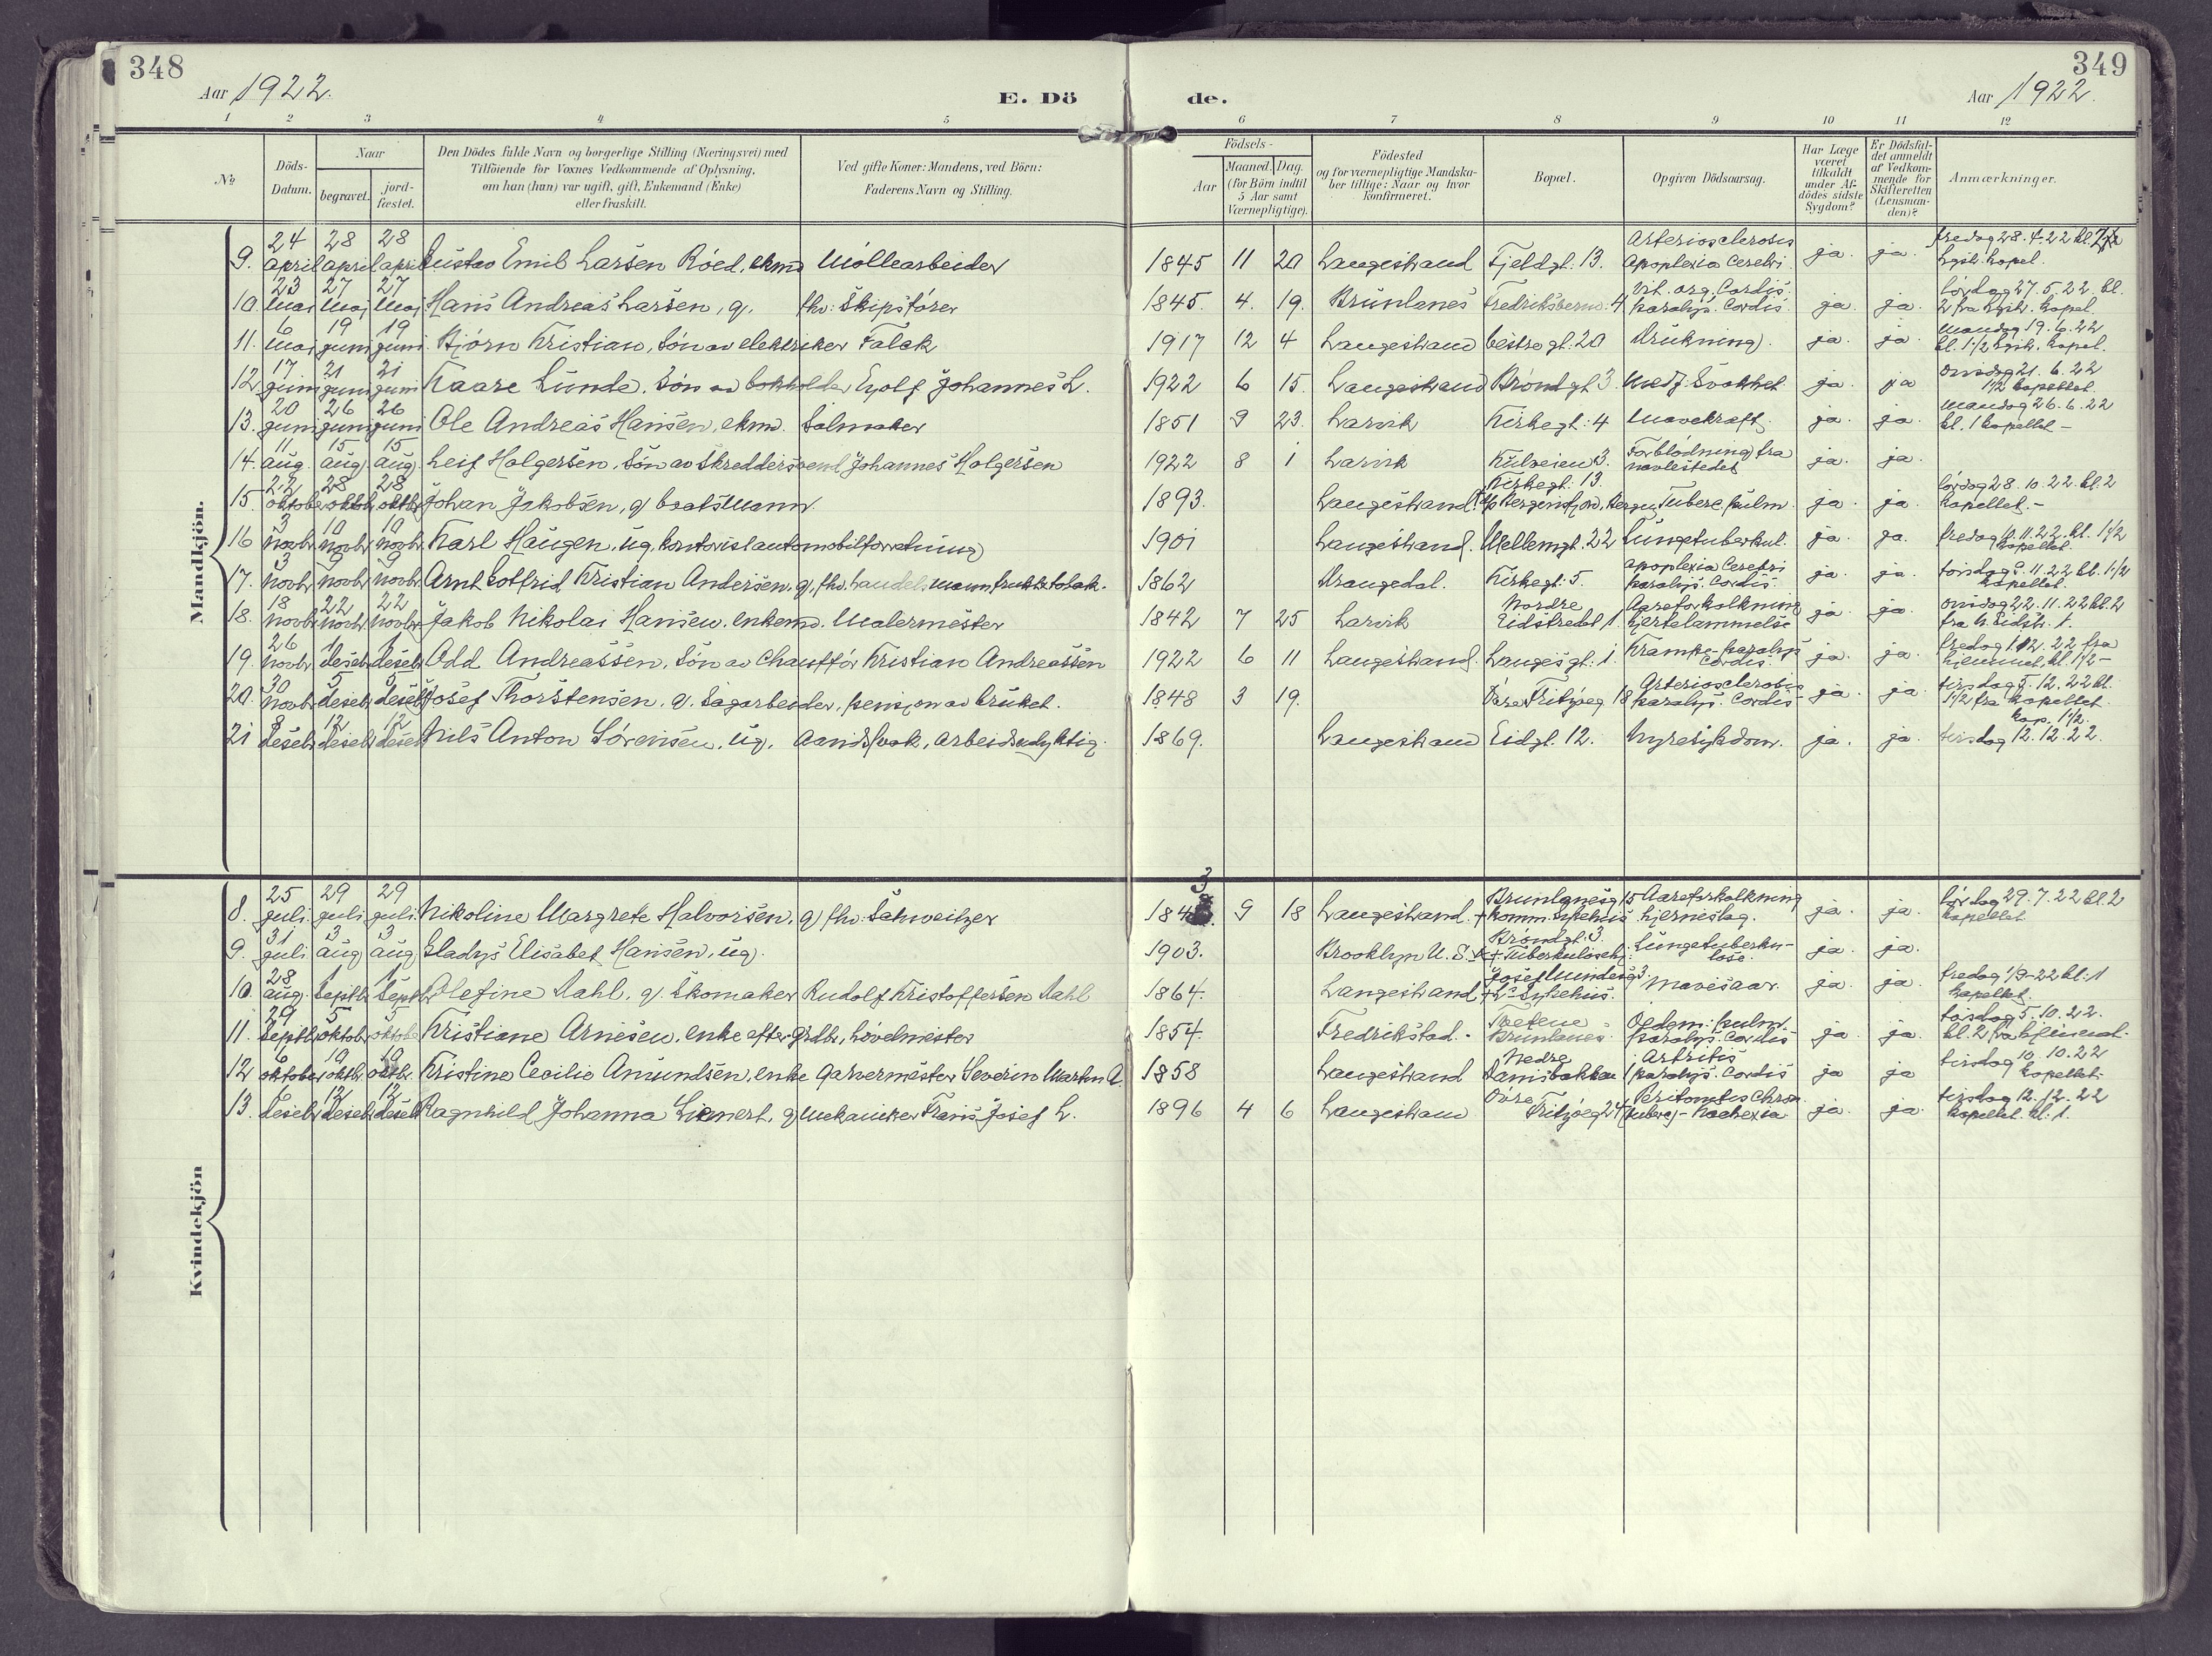 348
Aar 1922.
E. Dö
de.
349
Aar 1922.
1 2 3 4 5 6 7 8 9 10 11 12
№
Döds-
Datum.
Naar
begravet.
jord-
fæstet.
Den Dödes fulde Navn og borgerlige Stilling (Næringsvei) med
Tilföiende for Voxnes Vedkommende af Oplysning,
om han (hun) var ugift, gift, Enkemand (Enke)
eller fraskilt.
Ved gifte Koner: Mandens, ved Börn:
Faderens Navn og Stilling.
Födsels-
Aar
Maaned. Dag.
(for Börn indtil
5 Aar samt
Værnepligtige).
Födested
og for værnepligtige Mandska-
ber tillige: Naar og hvor
konfirmeret.
Bopæl.
Opgiven Dödsaarsag.
Har Læge
været
tilkaldt
under Af-
dödes sidste
Sygdom?
Er Dödsfal-
det anmeldt
af Vedkom-
mende for
Skifteretten
(Lensman-
den)?
Anmærkninger.
Mandkjön.
24 28 28 Arteriosclerosis fredag 28.4.22 kl.
9. april april april Gustav Emil Larsen Röed, ekmd Möllearbeider 1845 11 20 Langestrand Fjeldgt. 13. apoplexia cerebri ja. ja. kapel.
23 27 27 Vit. org. Cordis. lördag 27.5.22 kl.
10. Mai Mai Mai Hans Andreas Larsen, g. fhv: Skipsförer 1845 4. 19. Brunlanes Fredriksbern: 4 paralys. Cordis. ja. ja. 2 fra kapel.
6 19 19 mandag 19.6.22
11. Mai juni juni. Bjørn Kristian, Sön av elektriker Falck 1917 12 4 Langestrand Vestre gt. 20 Drukning. ja. ja. kl. 1 1/2 kapel.
17 21 21 onsdag 21.6.22
12 juni juni juni Kaare Lunde. Sön av bokholder Eyolf Johannes L. 1922 6 15. Langestrand Bröndgt 3. Medf. Svakhet ja. ja 1 1/2 kapellet.
20 26 26 mandag 26.6.22
13. juni juni juni Ole Andreas Hansen, ekmd. Salmaker 1851 9 23. Larvik Kirkegt. 4 Mavekraft. ja. ja. kl. 1 kapellet-
11 15 15 Forblödning fra
14. aug. aug aug. Leif Holgersen, Sön av Skreddersvend Johannes Holgersen 1922 8 1 Larvik Kulveien 3. navlestedet ja. ja.
22 28 28 Kirkegt. 13. lördag 28.10.22 kl. 2
15. oktober oktbr oktbr Johan Jakobsen, g baatsmann 1893. Langestrand. Bergensfjord, Bergen Tuberc. pulm. ja. ja. kapellet.-
3 10 10
16 Novbr Novbr Novbr. Karl Haugen, ug, kontorist automobilforretning 1901 Langestrand. Mellemgt. 22 Lungetuberkul. ja. ja. fredag 10.11.22. kl. 1 1/2 kapellet
3 9 9 apoplexia Cerebri
17. Novbr Novbr Novbr. Arnt Gotfrid Kristian Andersen, g, fhv. handelsmann frukt & tobak. 1862 Drangedal. Kirkegt. 5. paralys. Cordis. ja. ja. torsdag 9.11.22 kl. 1 1/2 kapellet
18 22 22 Nordre Aareforkalkning onsdag 22.11.22 kl. 2
18. Novbr Novbr Novbr Jakob Nikolai Hansen. enkem. Malermester 1842 7 25 Larvik Eidstredet 1. hjertelammelse ja. ja. fra N. Eidstr. 1.
26 1 1 Krampe- paralys fredag 1.12.22 fra
19. Novbr deseb deseb Odd Andreassen, Sön av Chauffør Kristian Andreassen 1922 6 11 Langestrand. Langesgt. 1. Cordis. ja. ja. hjemmet, kl. 1 1/2-
30 5 5 Arteriosclerosis tirsdag 5.12.22 kl.
20. Novbr desebr desebr Josef Thorstensen, g. Sagarbeider, pensjon av bruket. 1848 3 19. Øvre Fritzöeg 18 paralys. Cordis- ja. ja. 1 1/2 fra kapellet.
8 12 12 kap. 1 1/2.
21 desebr desebr desebr Nils Anton Sörensen, ug. aandsvak, arbeidsudyktig. 1869. Langestrand Eidgt. 12. Nyresykdom. ja. ja. tirsdag 12.12.22.
Kvindekjön
25 29 29 3 Brunlanesg 15 Aareforkalkning lördag 29.7.22 kl. 2
8. juli. juli juli. Nikoline Margrete Halvorsen, g) fhv. Schweitzer 184 9 18 Langestrand. + komm. Sykehus hjerneslag. ja. ja. kapellet
31 3 3 Bröndgt. 3. Lungetuberku-
9. juli aug aug Gladys Elisabet Hansen, ug. 1903. Brooklyn U.S. Tuberkulosehj. lose. ja. ja.
28 1 1 Josef Mundesg 3. fredag 1/9-22 kl. 1
10. aug. Septb Septbr Olefine Dahl. g. Skomaker Rudolf Kristoffersen Dahl 1864. Langestrand + Sykehus. Mavesaar. ja. ja. kapellet.
29 5 5 Tvetene Oedem. pulm. torsdag 5.10.22.
11. Septb oktob oktob Kristiane Arnesen, enke efter grdbr, hövelmester 1854. Fredrikstad. Brunlanes paralys. Cordis ja. ja. kl. 2 fra hjemmet.
6 10 10 Nedre Artritis tirsdag 10.10.22
12 oktober oktbr oktbr. Kristine Cecilie Amundsen, enke Garvermester Severin Martin A. 1858 Langestrand Damsbakken 1 paralys. Cordis ja ja kapellet.
6 12 12 Övre Peritonitis chron tirsdag 12.12.22
13. desebr desebr desebr Ragnhild Johanna Lienert, g, mekaniker Frans Josef L. 1896 4 6 Langestran Fritzöeg 24 (tuberc)- Kachexia ja. ja. kapellet. kl. 1.